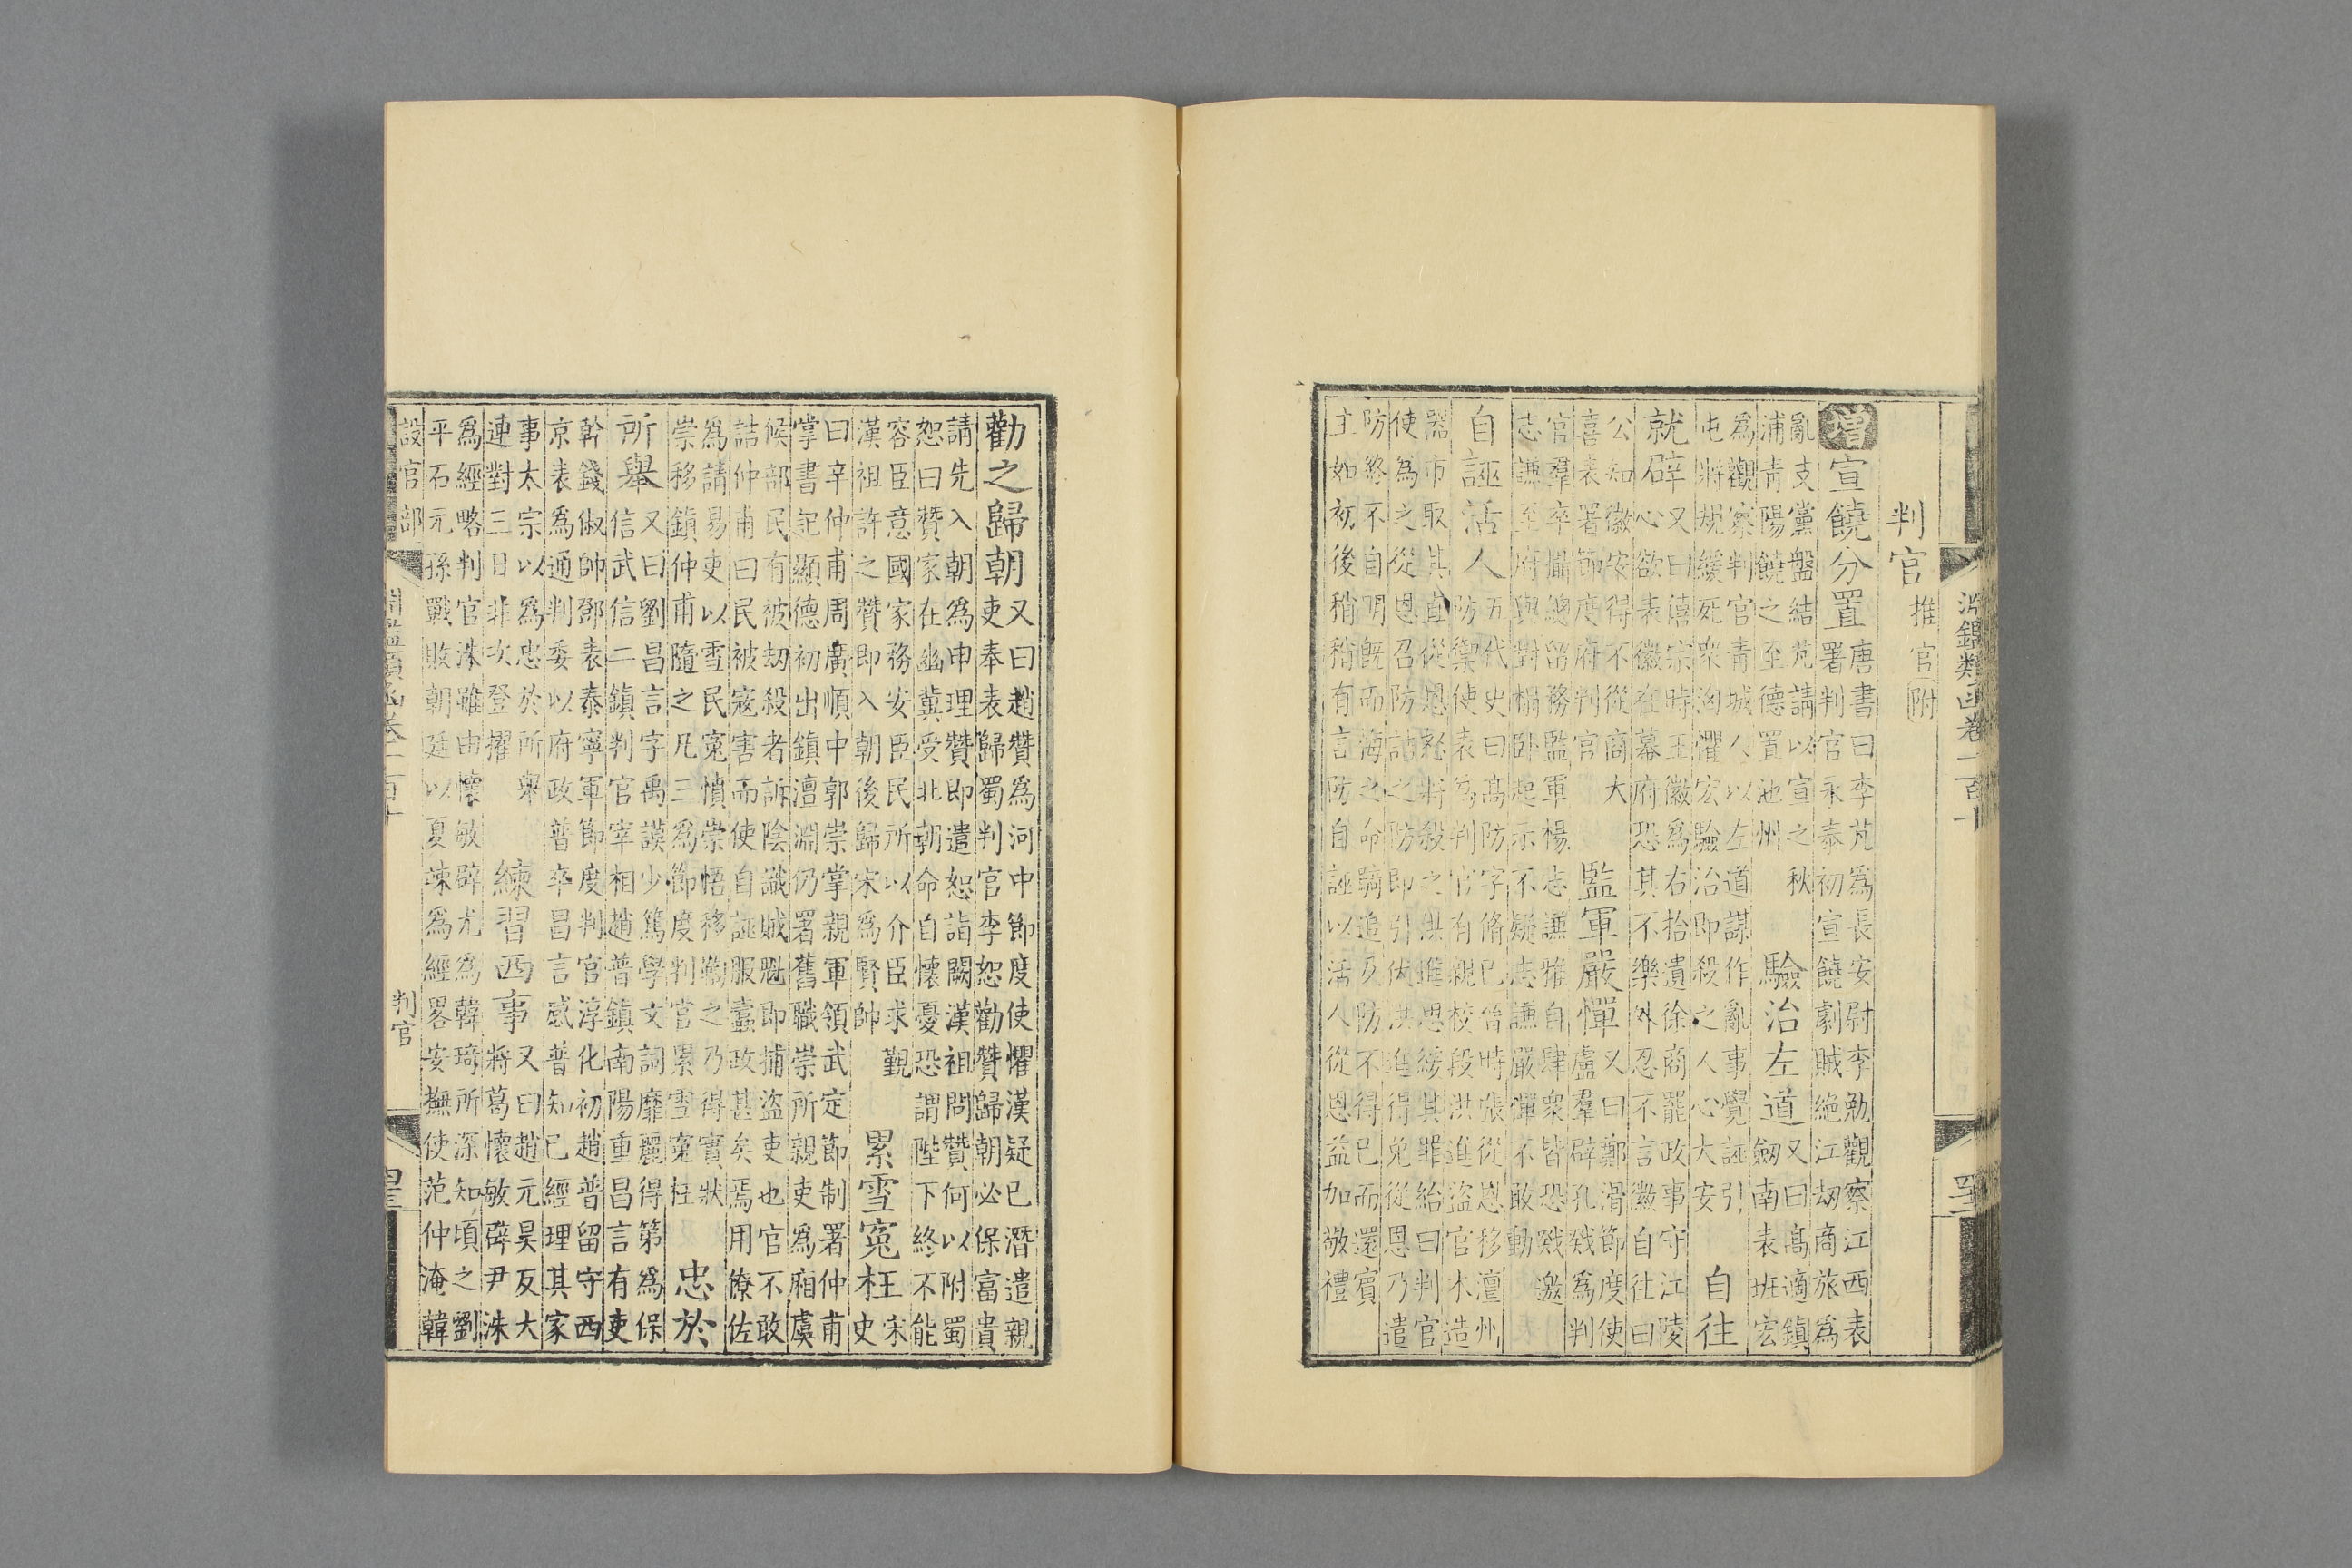 淵鑑類函卷一百十
判官推官附
增宣饒分置
唐書曰李芃為長安尉李勉觀察江西表
署判官永泰初宣饒劇賊絶江刼商旅為
亂支黨盤結芃請以宣之秋
浦青陽饒之至德置池州
驗治左道
又曰髙適鎮
劒南表班宏
為觀察判官青城人以左道謀作亂事覺誣引
屯將規緩死衆洶懼宏驗治即殺之人心大安
自往
就辟
又曰僖宗時王徽為右拾遺徐商罷政事守江陵
心欲表徽在幕府恐其不樂外忍不言徽自往曰
公知徽安得不從商大
喜表署節度府判官
監軍嚴憚
又曰鄭滑節度使
盧羣辟孔戣為判
官羣卒攝總留務監軍楊志謙雅自肆衆皆恐戣邀
志謙至府與對榻卧起示不疑志謙嚴憚不敢動
自誣活人
五代史曰髙防字脩已晉時張從恩移澶州
防禦使表為判官有親校段洪進盜官木造
器市取其直從恩怒將殺之洪進思緩其罪紿曰判官
使為之從恩召防詰之防即引伏洪進得免從恩乃遣
防終不自明既而海之命騎追及防不得已而還賓
主如初後稍稍有言防自誣以活人從恩益加敬禮
勸之歸朝
又曰趙贊為河中節度使懼漢疑已潛遣親
吏奉表歸蜀判官李恕勸贊歸朝必保富貴
請先入朝為申理贊即遣恕詣闕漢祖問贊何以附蜀
恕曰贊家在幽冀受北朝命自懷憂恐謂陛下終不能
容臣意國家務安臣民所以介臣求覲
漢祖許之贊即入朝後歸宋為賢帥
累雪寃枉
宋
史
曰辛仲甫周廣順中郭崇掌親軍領武定節制署仲甫
掌書記顯德初出鎮澶淵仍署舊職崇所親吏為廂虞
候部民有被刼殺者訴陰識賊魁即捕盜吏也官不敢
詰仲甫曰民被宼害而使自誣服蠹政甚矣焉用僚佐
為請易吏以雪民寃憤崇悟移鞫之乃得實狀
崇移鎮仲甫隨之凡三為節度判官累雪寃枉
忠於
所舉
又曰劉昌言字禹謨少篤學文詞靡麗得第為保
信武信二鎮判官宰相趙普鎮南陽重昌言有吏
幹錢俶帥鄧表泰寧軍節度判官淳化初趙普留守西
京表為通判委以府政普卒昌言感普知已經理其家
事太宗以為忠於所舉
連對三日非次登擢
練習西事
又曰趙元昊反大
將葛懷敏辟尹洙
為經略判官洙雖由懷敏辟尤為韓琦所深知頃之劉
平石元孫戰敗朝廷以夏竦為經畧安撫使范仲淹韓
設官部
判官